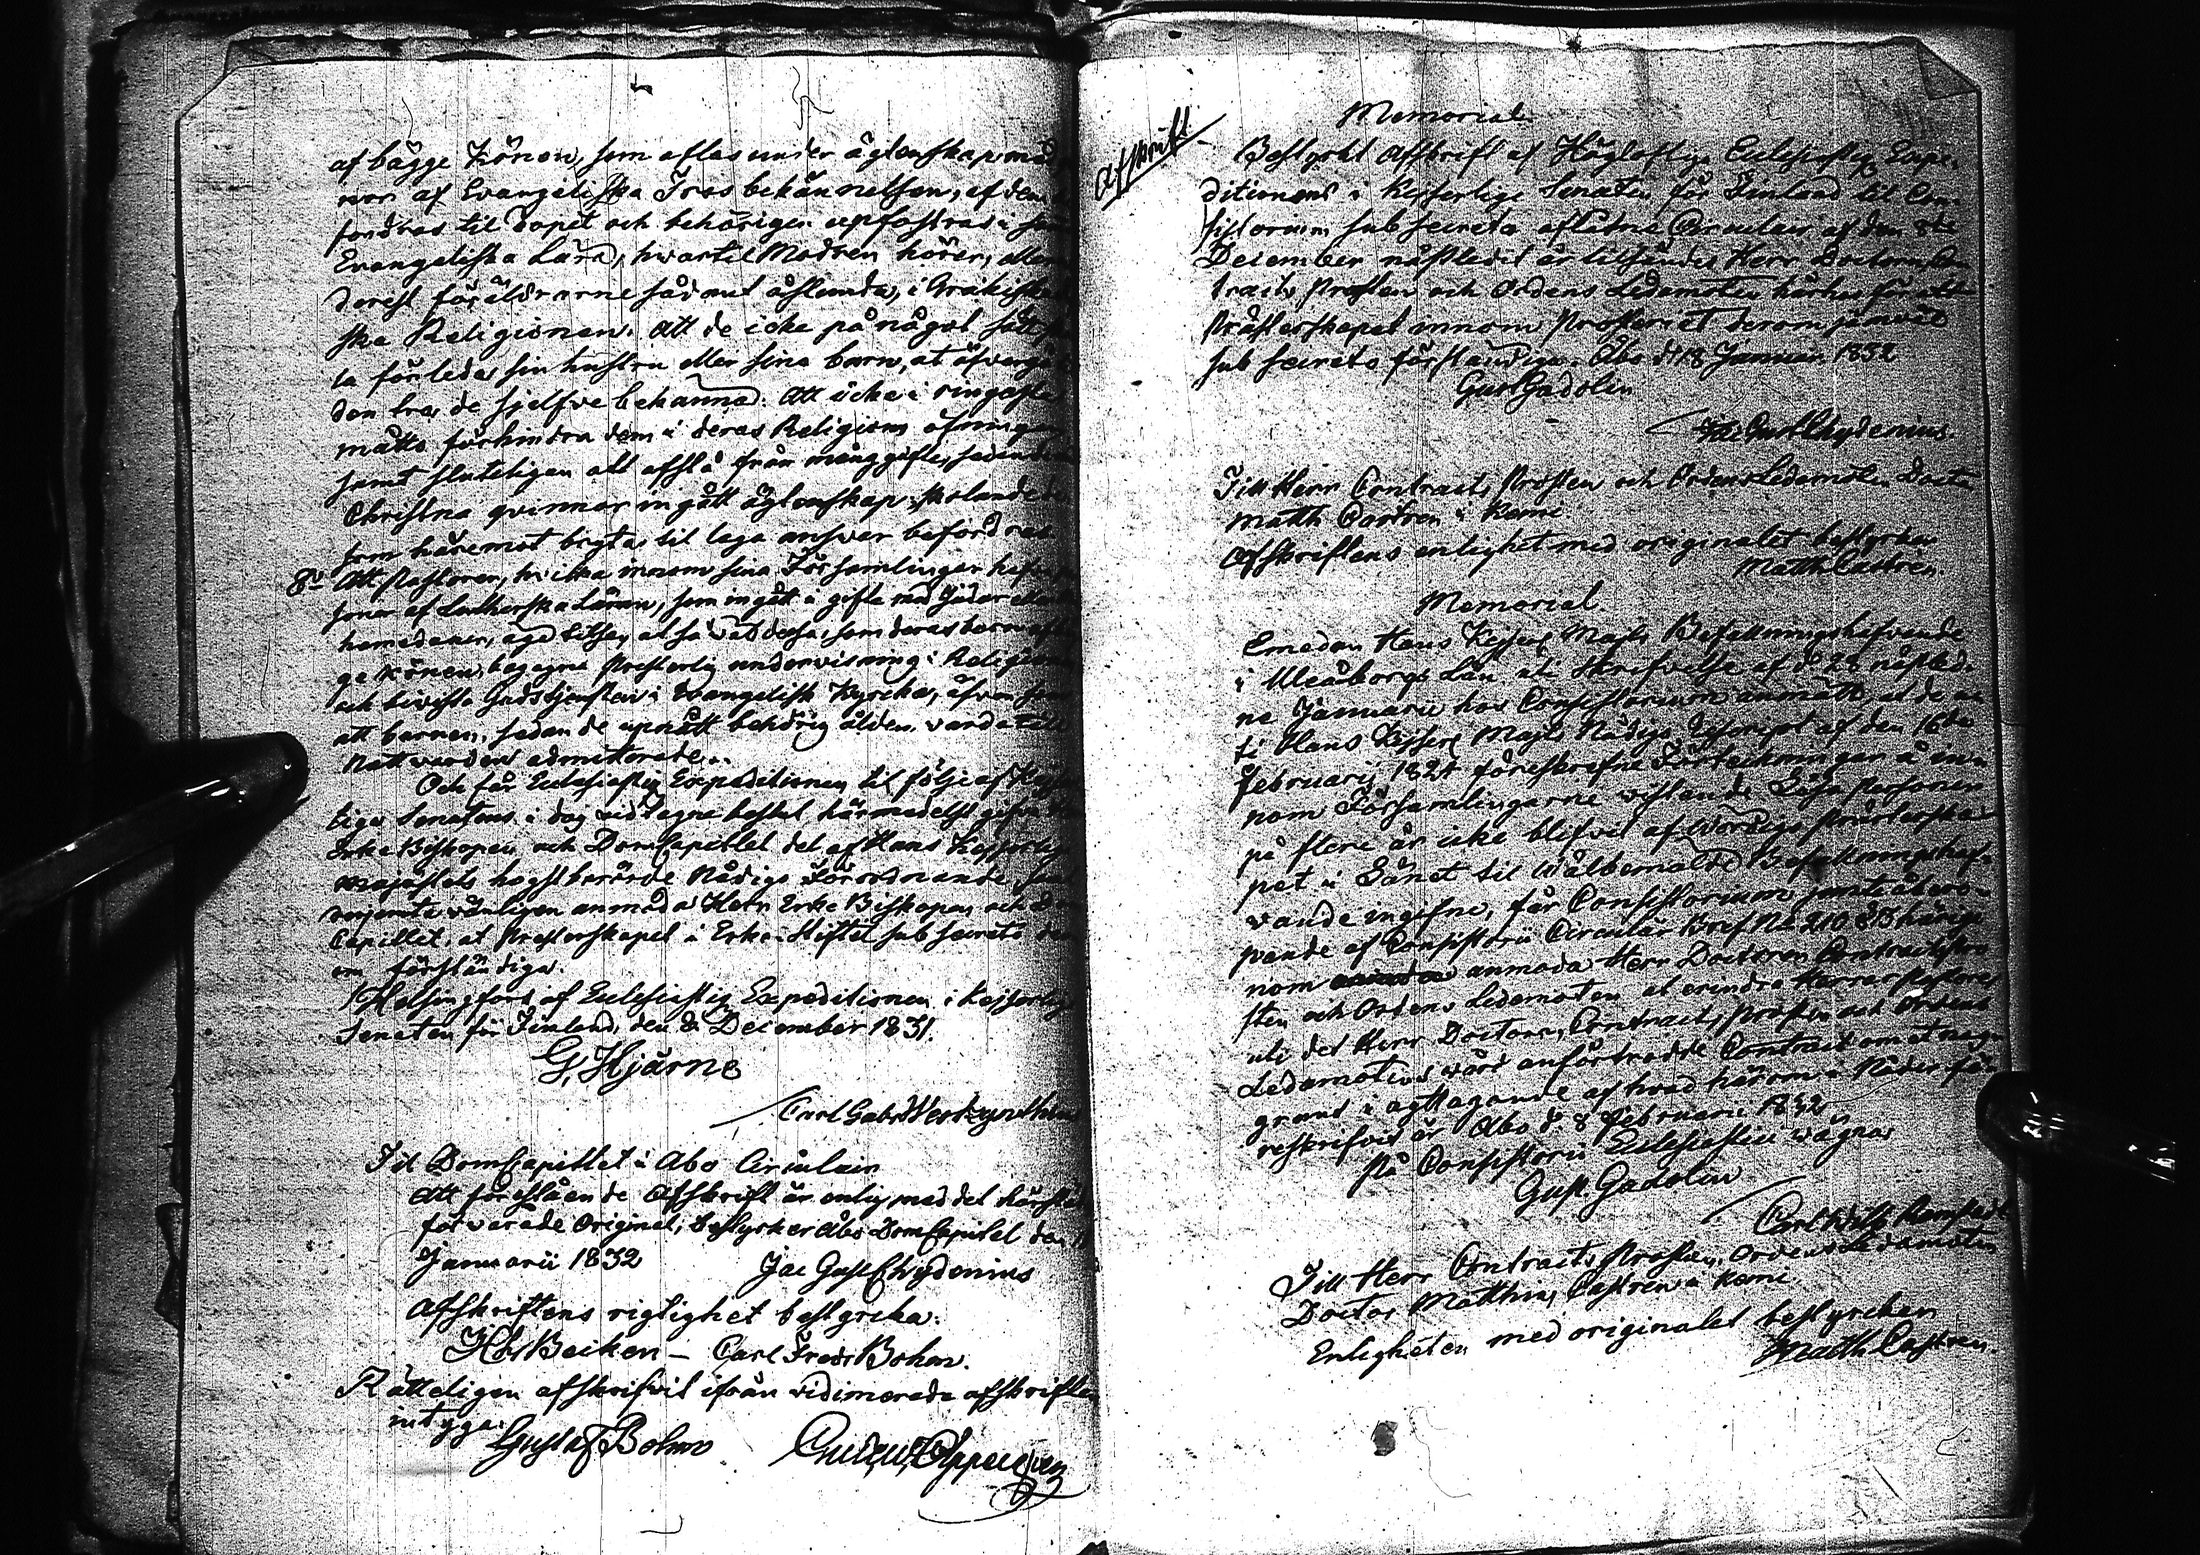 af bägge Könen, som aflas under ägtenskap med
nor af Evangeliska Tros bekännelsen, af dem
fordras til dopet och behörigen upfostras i sin
Evangeliska Lära, hwartil Modren hörer, allen
derest föräldrarne så omt åstunda, i Grækisk
ska Religionen. Att de icke på något sätt
ta förleda sin hustru eller sina barn, at öfvergå
den tro de sjelfve bekänna. Att icke i ringaste
måtto förhindra dem i deras Religions öfningar
samt sluteligen att afstå från månggifte, sedan de
Christna qvinnor ingått ägtenskap, skolande de
som häremot bryta til laga answar befordras
8:o Att Pastorer, hvilka innom sina Församlingar hafva
soner af Lutherska Läran, som ingått i gifte med Judar eller
homedaner, äga tilse, at så väl dessa, som deras barn af
ge Könen, begagna Presterlig underwisning i Religion
och bivista Gudstjensten i Evangelisk Kyrcka, äfven som
att barnen, sedan de upnått behörig ålder, varda till
Nattvarden admitterade.
Och får Ecclesiastiq Expeditionen til följe af Kejser
liga Senatens i dag widtagne beslut härmedelst gifva
Erke Biskopen och DomCapitlet del af Hans Kejserlig
Majestets högstberörde Nådiga Förordnande, samt
derjemte wänligen anmoda Herr Erke Biskopen och Dom
Capitlet, at Presterskapet i Erke-Stiftet sub secreto der
om förständiga.
Helsingfors af Ecclesiastiq Expeditionen i Kejserlig
Senaten för Finland, den 8 December 1831.
G. Hjärne
Carl Gabr
Til DomCapitlet i Åbo Circulair
Att förestående Afskrift är enlig med det härstä
förvarade Original, bestyrker Åbo DomCapitel den
Januarii 1832
Jac Gust Chydenius
Afskriftens rigtighet bestyrcka.
Beiken – Carl Fredr Bohm.
Rätteligen afskrifvit ifrån vidimerade afskriften
intyga.
Gustaf Bohm
Afskrift
Memorial.
Bestyrkt Afskrift af Höglofliga Ecclesiastiq Expe-
ditionens i Kejserlige Senaten för Finland til Con-
sistorium sub secreto aflåtne Circulair af den 8de
December nästledit år tilsändes Herr Doctorn, Con
tracts Prosten och Ordens Ledamoten härhos för att
Presterskapet innom Prosteriet derom jemväl
sub secreto förständiga. Åbo d 18 Januarii 1832
Gust Gadolin
Jac Gust Chydenius.
Till Herr Contracts Prosten och Ordens Ledamoten Doctor
Matth Castren i Kemi
Afskriftens enlighet med originalet bestyrker
Matth Castrén.
Memorial.
Emedan Hans Kejserl Majts Befallningshafvande
i Uleåborgs Län uti skrifvelse af d 28 nästled-
ne Januarii hos Consistorium anmält, at de u
ti Hans Kejserl Majts Nådiga Rescript af den 16de
Februarii 1824 föreskrefne Förteckningar å in-
nom Församlingarne vistande Lösa Personer
på flere år icke blifvit af Wördiga Prästerska-
pet i Länet til Wälbemälde Befallningshaf-
vande ingifne, får Consistorium jemte åbero-
pande af Consistorii Circulär Bref No 210 § 3 härige
nom anmoda Herr Doctoren Contracts Pro
sten och Ordens Ledamoten at erindra Herrar Pastorer
uti det Herr Doctorn, Contracts Prosten och Ordens
Ledamotens wård anförtrodde Contract om et nog-
grant i agttagande af hvad härom i Nåder fö-
reskrifvit är. Åbo d 8 Februarii 1832
På Consistorii Ecclesiastici wägnar
Gust. Gadolin
Carl Wilh Ramstedt
Till Herr Contracts Prosten, Ordens Ledamoten
Doctor Matthias Castrén i Kemi.
Enligheten med originalet bestyrcker
Matth Castren.